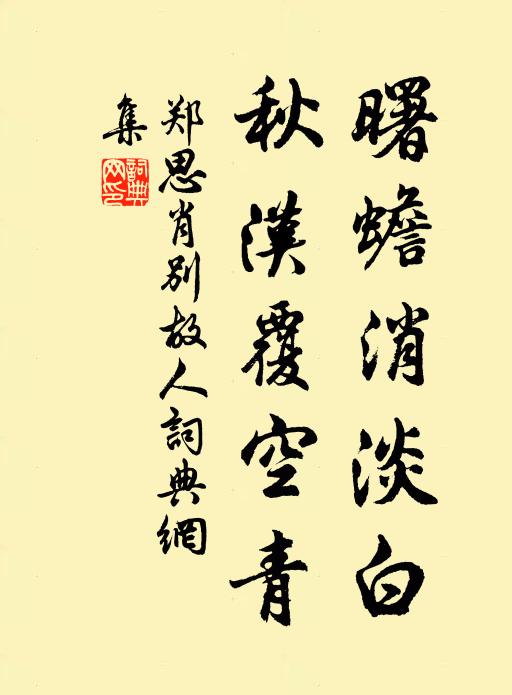 曙蟾消淡白
秋漢覆空青
郑思肖别故人詞典網
集
詞典
网印